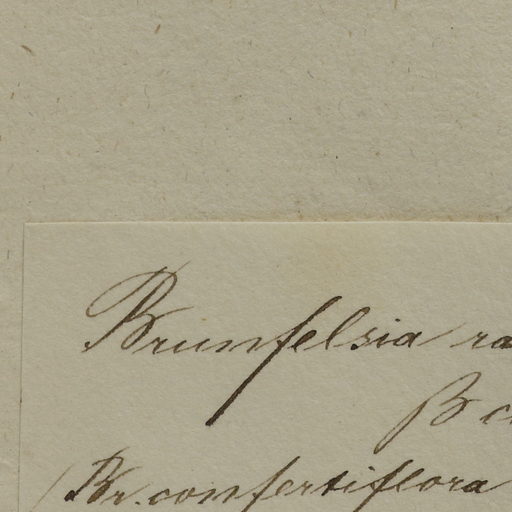 Brunfelsia ra
β c
Br. confertiflora